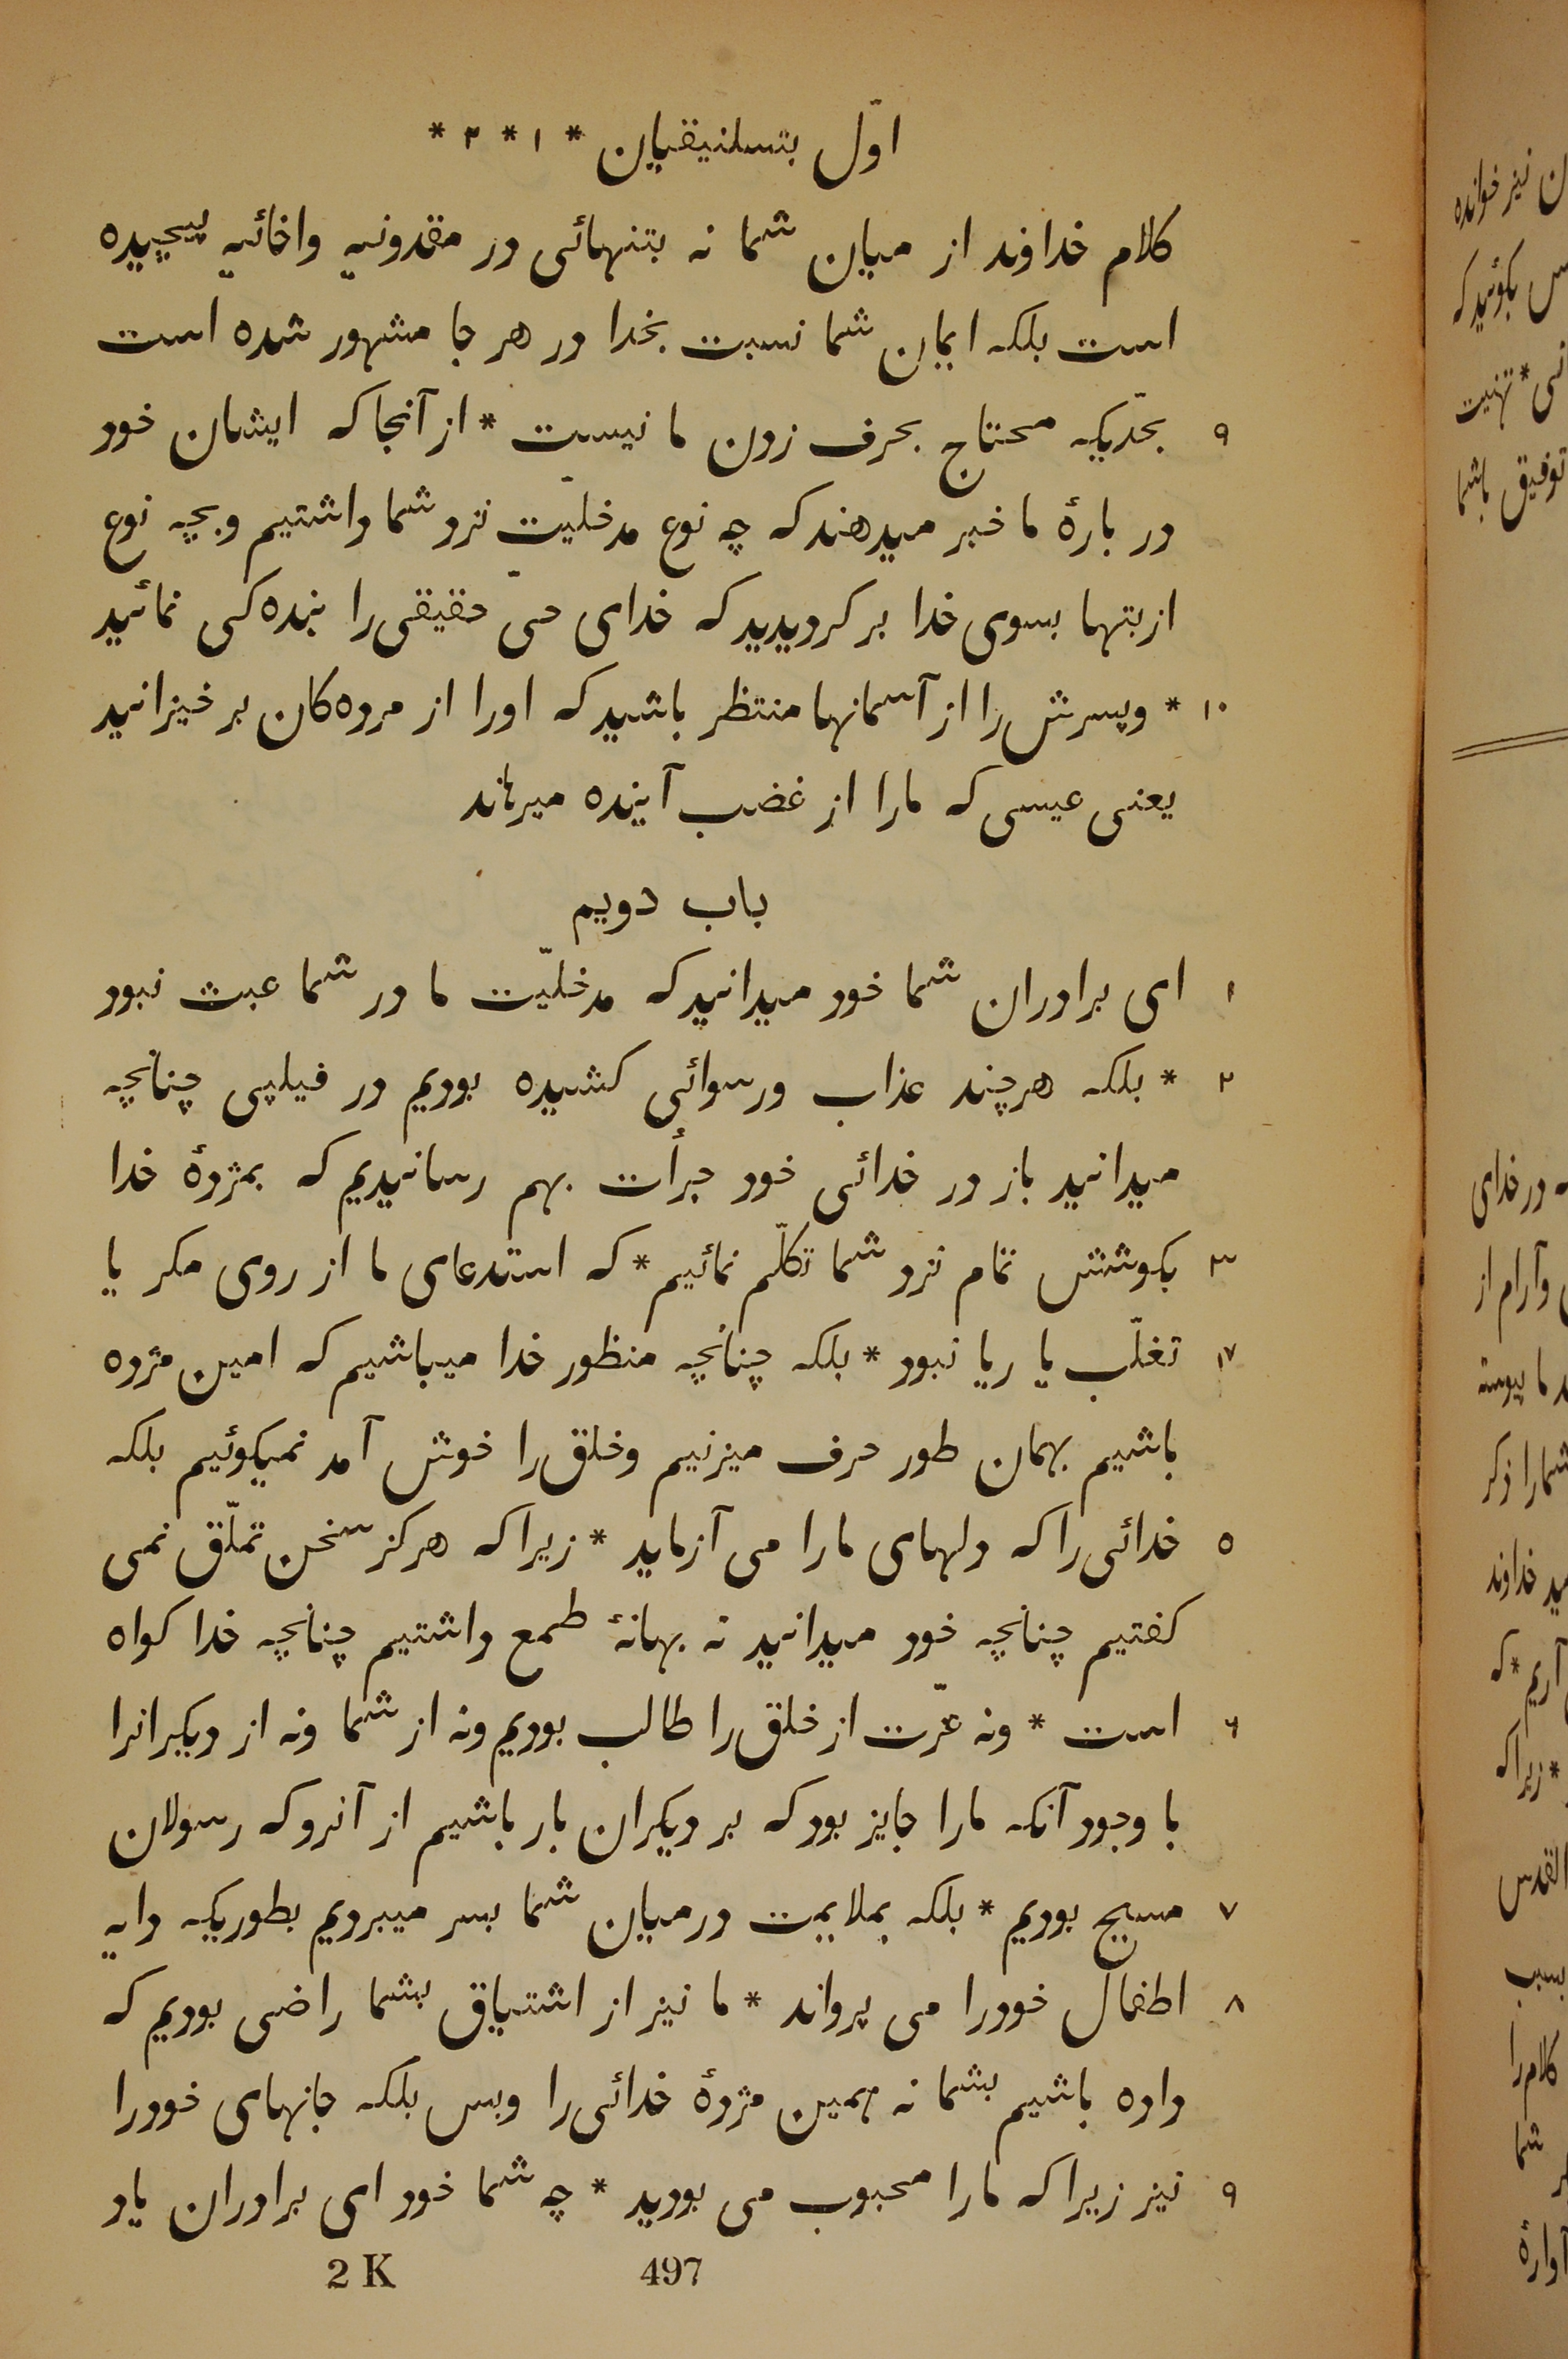 اوّل بتسلنیقیان * ۱ * ۲ *
کلام خداوند از میان شما نه بتنهائی در مقدونیه واخائیه پیچیده
است بلکه ایمان شما نسبت بخدا در هر جا مشهور شده است
۹ بحدّیکه محتاج بحرف زدن ما نیست * از آنجا که ایشان خود
در بارهٔ ما خبر میدهند که چه نوع مدخلیّت نزد شما داشتیم وبچه نوع
از بتها بسوی خدا بر کردیدید که خدای حیّ حقیقی را بنده کی نمائید
۱۰ * وپسرش را از آسمانها منتظر باشید که اورا از مرده کان بر خیزانید
یعنی عیسی که مارا از غضب آینده میرهاند
باب دویم
۱ ای برادران شما خود میدانید که مدخلیّت ما در شما عبث نبود
۲ * بلکه هرچند عذاب ورسوائی کشیده بودیم در فیلپی چنانچه
میدانید باز در خدائی خود جرأت بهم رسانیدیم که بمژدهٔ خدا
۳ بکوشش تمام نزد شما تکلّم نمائیم * که استدعای ما از روی مکر یا
۴ تغلّب یا ریا نبود * بلکه چنانچه منظور خدا میباشیم که امین مژده
باشیم بهمان طور حرف میزنیم وخلق را خوش آمد نمیکوئیم بلکه
۵ خدائی را که دلهای مارا می آزماید * زیرا که هرکز سخن تملّق نمی
کفتیم چنانچه خود میدانید نه بهانهٔ طمع داشتیم چنانچه خدا کواه
۶ است * ونه عزّت از خلق را طالب بودیم ونه از شما ونه از دیکرانرا
با وجود آنکه مارا جایز بود که بر دیکران بار باشیم از آنرو که رسولان
۷ مسیح بودیم * بلکه بملایمت در میان شما بسر میبردیم بطوریکه دایه
۸ اطفال خودرا می پرواند * ما نیز از اشتیاق بشما راضی بودیم که
داده باشیم بشما نه همین مژدهٔ خدائی را وبس بلکه جانهای خودرا
۹ نیز زیرا که مارا محبوب می بودید * چه شما خود ای برادران یاد
2 K 497
ن نیز خوانده
س بکوئید که
تهنیت
توفیق باشما
در خدای
وآرام از
ما پیوسته
شمارا ذکر
خداوند
آریم * که
* زیرا که
القدس
بسبب
کلام را
شما
آوارهٔ